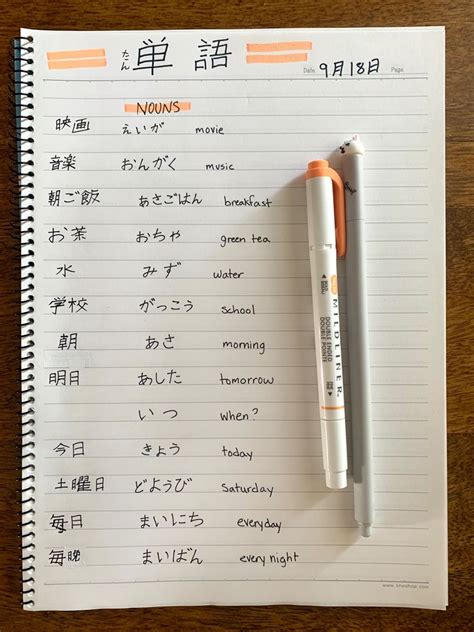 たん
単語
Date 9月18日 Page
NOUNS
映画 えいが movie
音楽 おんがく music
朝ご飯 あさごはん breakfast
お茶 おちゃ green tea
水 みず water
学校 がっこう school
朝 あさ morning
明日 あした tomorrow
いつ when?
今日 きょう today
土曜日 どようび Saturday
毎日 まいにち everyday
毎晩 まいばん every night
MILDLINER
DOUBLE ENDED
DOUBLE POINTE